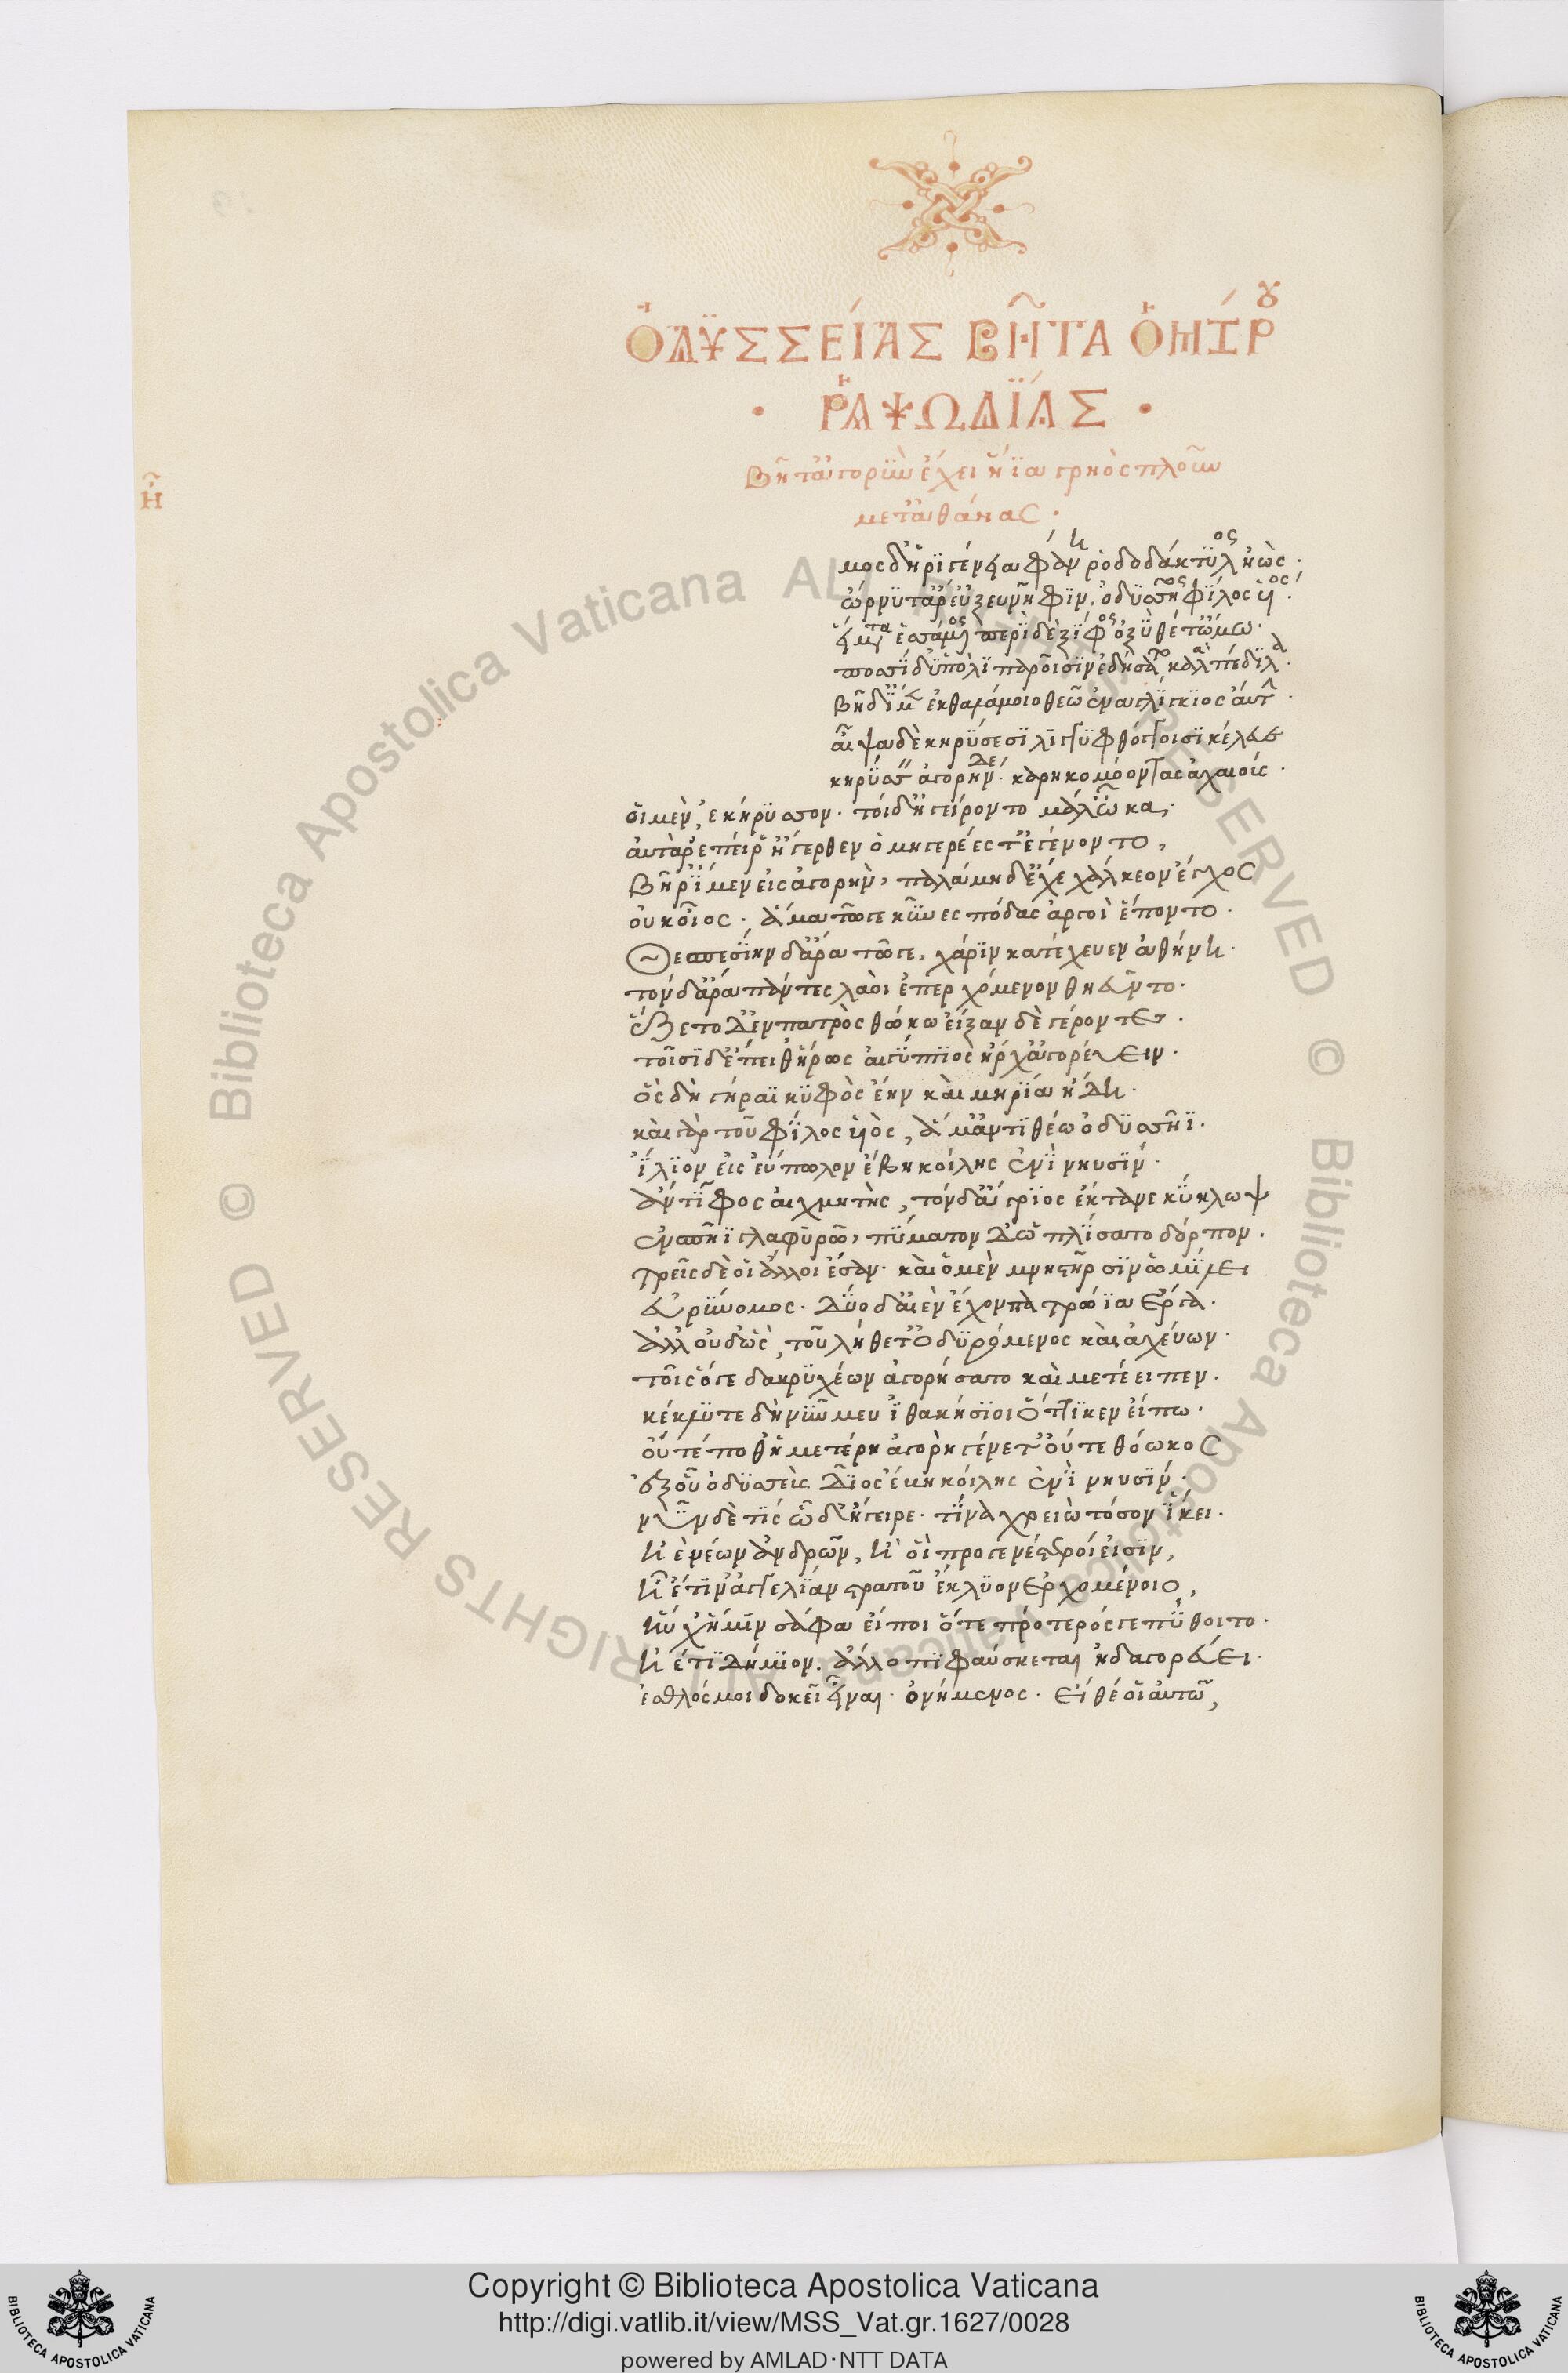 ὈΔΥΣΣΕΊΑΣ ΒΗ͂ΤΑ ὉΜΉΡου
· ῬΑΨΩΔΊΑΣ ·
Βῆτ' ἀγορὴν ἔχει ἠ ἰα γρηὸς πλοῦν
μετ' ἀθάνας ·
Ἠ̂
μος δ' ἠριγένεια φάνη ῥοδοδάκτυλος ἠώς ·
ὤρνυτ' ἄρ' ἐξ εὐνῆφιν, ὀδυσσῆος φίλος υἱός ·
εἵματα ἑσσάμενος περὶ δὲ ξίφος ὀξὺ θέτ' ὤμω ·
ποσσὶ δ' ὑπὸ λιπαροῖσιν ἐδήσατο καλὰ πέδιλα ·
βῆ δ' ἴμεν ἐκ θαλάμοιο θεῶ ἐναλίγκιος ἄντην ·
αἶψα δὲ κηρύκεσσι λιγυφθόγγοισι κέλευσε
κηρύσσειν ἀγορήνδε · καρηκομόοντας ἀχαιούς ·
οἱ μὲν, ἐκήρυσσον · τοὶ δ' ἠγείροντο μάλ' ὦκα ·
αὐτὰρ ἐπεί ῥ' ἤγερθεν ὁμηγερέες τ' ἐγένοντο,
βῆ ῥ' ἴμεν εἰς ἀγορὴν, παλάμη δ' ἔχε χάλκεον ἔγχος
οὐκ οἶος · ἅμα τῶγε κύνες πόδας ἀργοὶ ἕποντο ·
Θεσπεσίην δ' ἄρα τῶγε, χάριν κατέχευεν ἀθήνη ·
τὸν δ' ἄρα πάντες λαοὶ ἐπερχόμενον θηεῦντο ·
ἕζετο δ' ἐν πατρὸς θώκω εἶξαν δὲ γέροντες ·
τοῖσι δ' ἔπειθ' ἥρως αἰγύπτιος ἦρχ' ἀγορεύειν ·
ὃς δὴ γήραϊ κυφὸς ἔην καὶ μηρία ἤδη ·
καὶ γὰρ τοῦ φίλος υἱὸς, ἅμ' ἀντιθέω ὀδυσσῆϊ ·
ἴλιον εἰς εὔπωλον ἔβη κοίλης ἐνὶ νηυσίν ·
ἄντιφος αἰχμητὴς, τὸν δ' ἄγριος ἔκτανε κύκλωψ
ἐν σπῆϊ γλαφυρῶ, πύματον δ' ὡπλίσατο δόρπον ·
τρεῖς δὲ οἱ ἄλλοι ἔσαν · καὶ ὁ μὲν μνηστῆρσιν ὁμίλει
εὐρύνομος · δύο δ' αἰὲν ἔχον πατρώϊα ἔργα ·
ἀλλ' οὐδ' ὣς, τοῦ λήθετ' ὀδυρόμενος καὶ ἀχεύων ·
τοῖς ὅγε δακρυχέων ἀγορήσατο καὶ μετέειπεν ·
κέκλυτε δὴ νῦν μευ ἰθακήσιοι ὅττι κεν εἴπω ·
οὔτέ ποθ' ἡμετέρη ἀγορὴ γένετ' οὔτε θόωκος
ἐξ οὗ ὀδυσσεὺς δῖος ἔβη κοίλης ἐνὶ νηυσίν ·
νῦν δὲ τίς ὧδ' ἤγειρε · τίνα χρειὼ τόσον ἵκει ·
ἠὲ νέων ἀνδρῶν, ἢ οἳ προγενέστεροί εἰσιν,
ἠὲ τιν' ἀγγελίαν στρατοῦ ἔκλυον ἐρχομένοιο,
ἥν χ' ἡμῖν σάφα εἴποι ὅτε πρότερός γε πύθοιτο ·
ἠέ τι δήμιον · ἄλλο πιφαύσκεται ἠδ' ἀγορεύει ·
ἐσθλός μοι δοκεῖ εἶναι · ὀνήμενος · εἴθέ οἱ αὐτῶ,
Copyright © Biblioteca Apostolica Vaticana
http://digi.vatlib.it/view/MSS_Vat.gr.1627/0028
powered by AMLAD·NTT DATA
BIBLIOTECA APOSTOLICA VATICANA
BIBLIOTECA APOSTOLICA VATICANA
© Biblioteca Apostolica Vaticana ALL RIGHTS RESERVED © Biblioteca Apostolica Vaticana ALL RIGHTS RESERVED